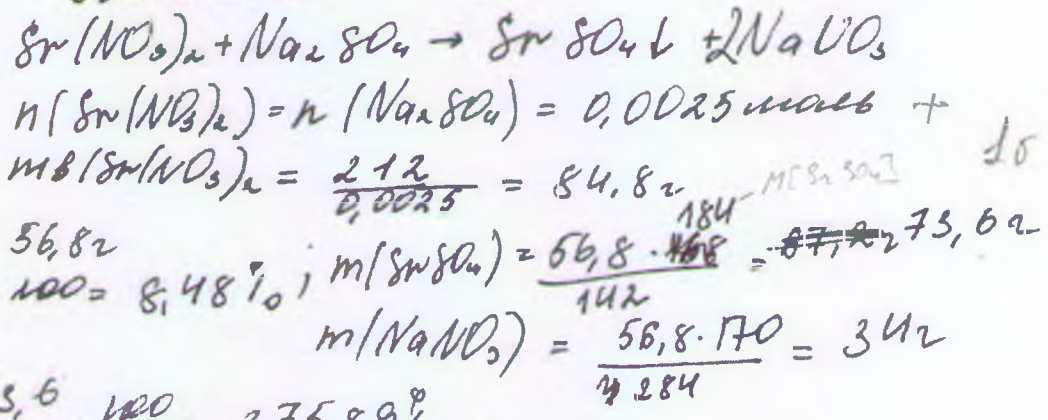 Sr(NO₃)₂ + Na₂SO₄ → SrSO₄↓ + 2NaNO₃
n(Sr(NO₃)₂) = n(Na₂SO₄) = 0,0025 моль +
mв(Sr(NO₃)₂ = 212/0,0025 = 84,8г M[SrSO₄] 1б
56,8г
100 = 8,48%; m(SrSO₄) = 56,8·184/142 = 73,6г
m(NaNO₃) = 56,8·170/284 = 34г
3,6 100